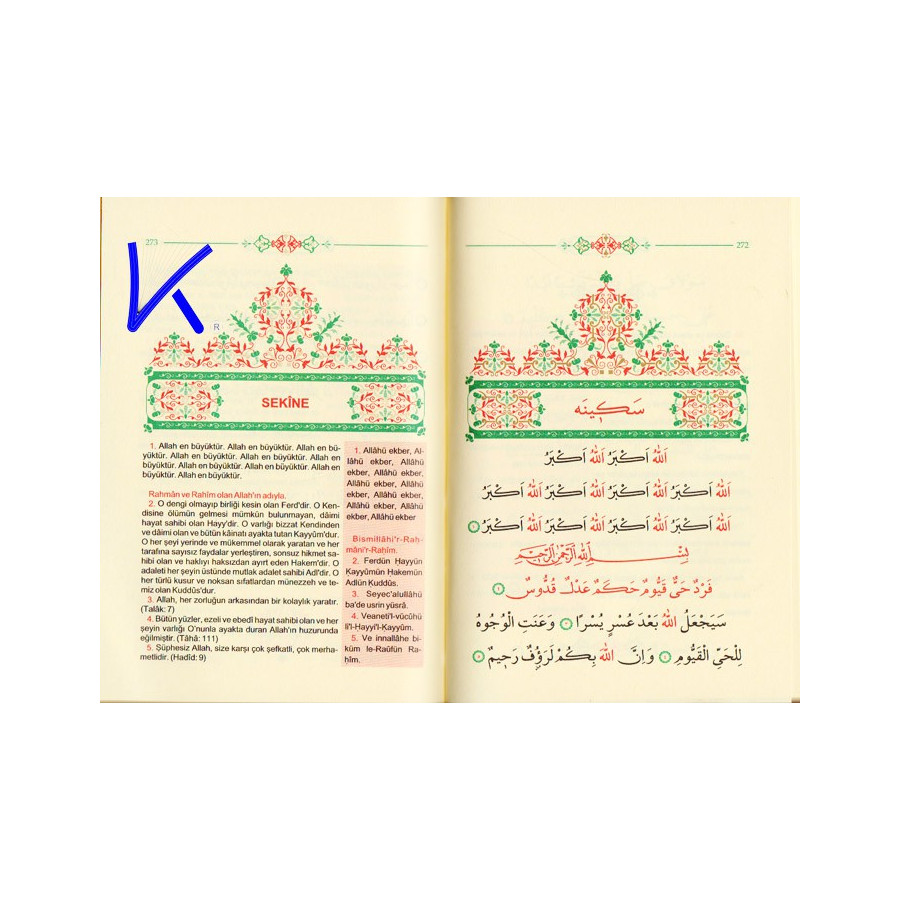 272
سَكِينَه
اَللّٰهُ اَكْبَرُ اَللّٰهُ اَكْبَرُ
اَللّٰهُ اَكْبَرُ اَللّٰهُ اَكْبَرُ اَللّٰهُ اَكْبَرُ اَللّٰهُ اَكْبَرُ
اَللّٰهُ اَكْبَرُ اَللّٰهُ اَكْبَرُ اَللّٰهُ اَكْبَرُ اَللّٰهُ اَكْبَرُ ١
بِسْمِ اللّٰهِ الرَّحْمٰنِ الرَّحِيمِ
فَرْدٌ حَىٌّ قَيُّومٌ حَكَمٌ عَدْلٌ قُدُّوسٌ ٢
سَيَجْعَلُ اللّٰهُ بَعْدَ عُسْرٍ يُسْرًا ٣ وَعَنَتِ الْوُجُوهُ
لِلْحَيِّ الْقَيُّومِ ٤ وَاِنَّ اللّٰهَ بِكُمْ لَرَؤُفٌ رَحِيمٌ ٥
273
R
SEKÎNE
1. Allah en büyüktür. Allah en büyüktür. Allah en bü-
yüktür. Allah en büyüktür. Allah en büyüktür. Allah en
büyüktür. Allah en büyüktür. Allah en büyüktür. Allah en
büyüktür. Allah en büyüktür.
Rahmân ve Rahîm olan Allah'ın adıyla.
2. O dengi olmayıp birliği kesin olan Ferd'dir. O Ken-
disine ölümün gelmesi mümkün bulunmayan, dâimi
hayat sahibi olan Hayy'dir. O varlığı bizzat Kendinden
ve dâimi olan ve bütün kâinatı ayakta tutan Kayyûm'dur.
O her şeyi yerinde ve mükemmel olarak yaratan ve her
tarafına sayısız faydalar yerleştiren, sonsuz hikmet sa-
hibi olan ve haklıyı haksızdan ayırt eden Hakem'dir. O
adaleti her şeyin üstünde mutlak adalet sahibi Adl'dir. O
her türlü kusur ve noksan sıfatlardan münezzeh ve te-
miz olan Kuddûs'dur.
3. Allah, her zorluğun arkasından bir kolaylık yaratır.
(Talâk: 7)
4. Bütün yüzler, ezeli ve ebedî hayat sahibi olan ve her
şeyin varlığı O'nunla ayakta duran Allah'ın huzurunda
eğilmiştir. (Tâhâ: 111)
5. Şüphesiz Allah, size karşı çok şefkatli, çok merha-
metlidir. (Hadîd: 9)
1. Allâhü ekber, Al-
lâhü ekber, Allâhü
ekber, Allâhü ekber,
Allâhü ekber, Allâhü
ekber, Allâhü ekber,
Allâhü ekber, Allâhü
ekber, Allâhü ekber
Bismillâhi'r-Rah-
mâni'r-Rahîm.
2. Ferdün Ḥayyün
Ḳayyûmün Ḥakemün
Adlün Kuddûs.
3. Seyec'alullâhü
ba'de usrin yüsrâ.
4. Veaneti'l-vücûhü
li'l-Ḥayyi'l-Ḳayyûm.
5. Ve innallâhe bi-
küm le-Raûfün Ra-
ḥîm.